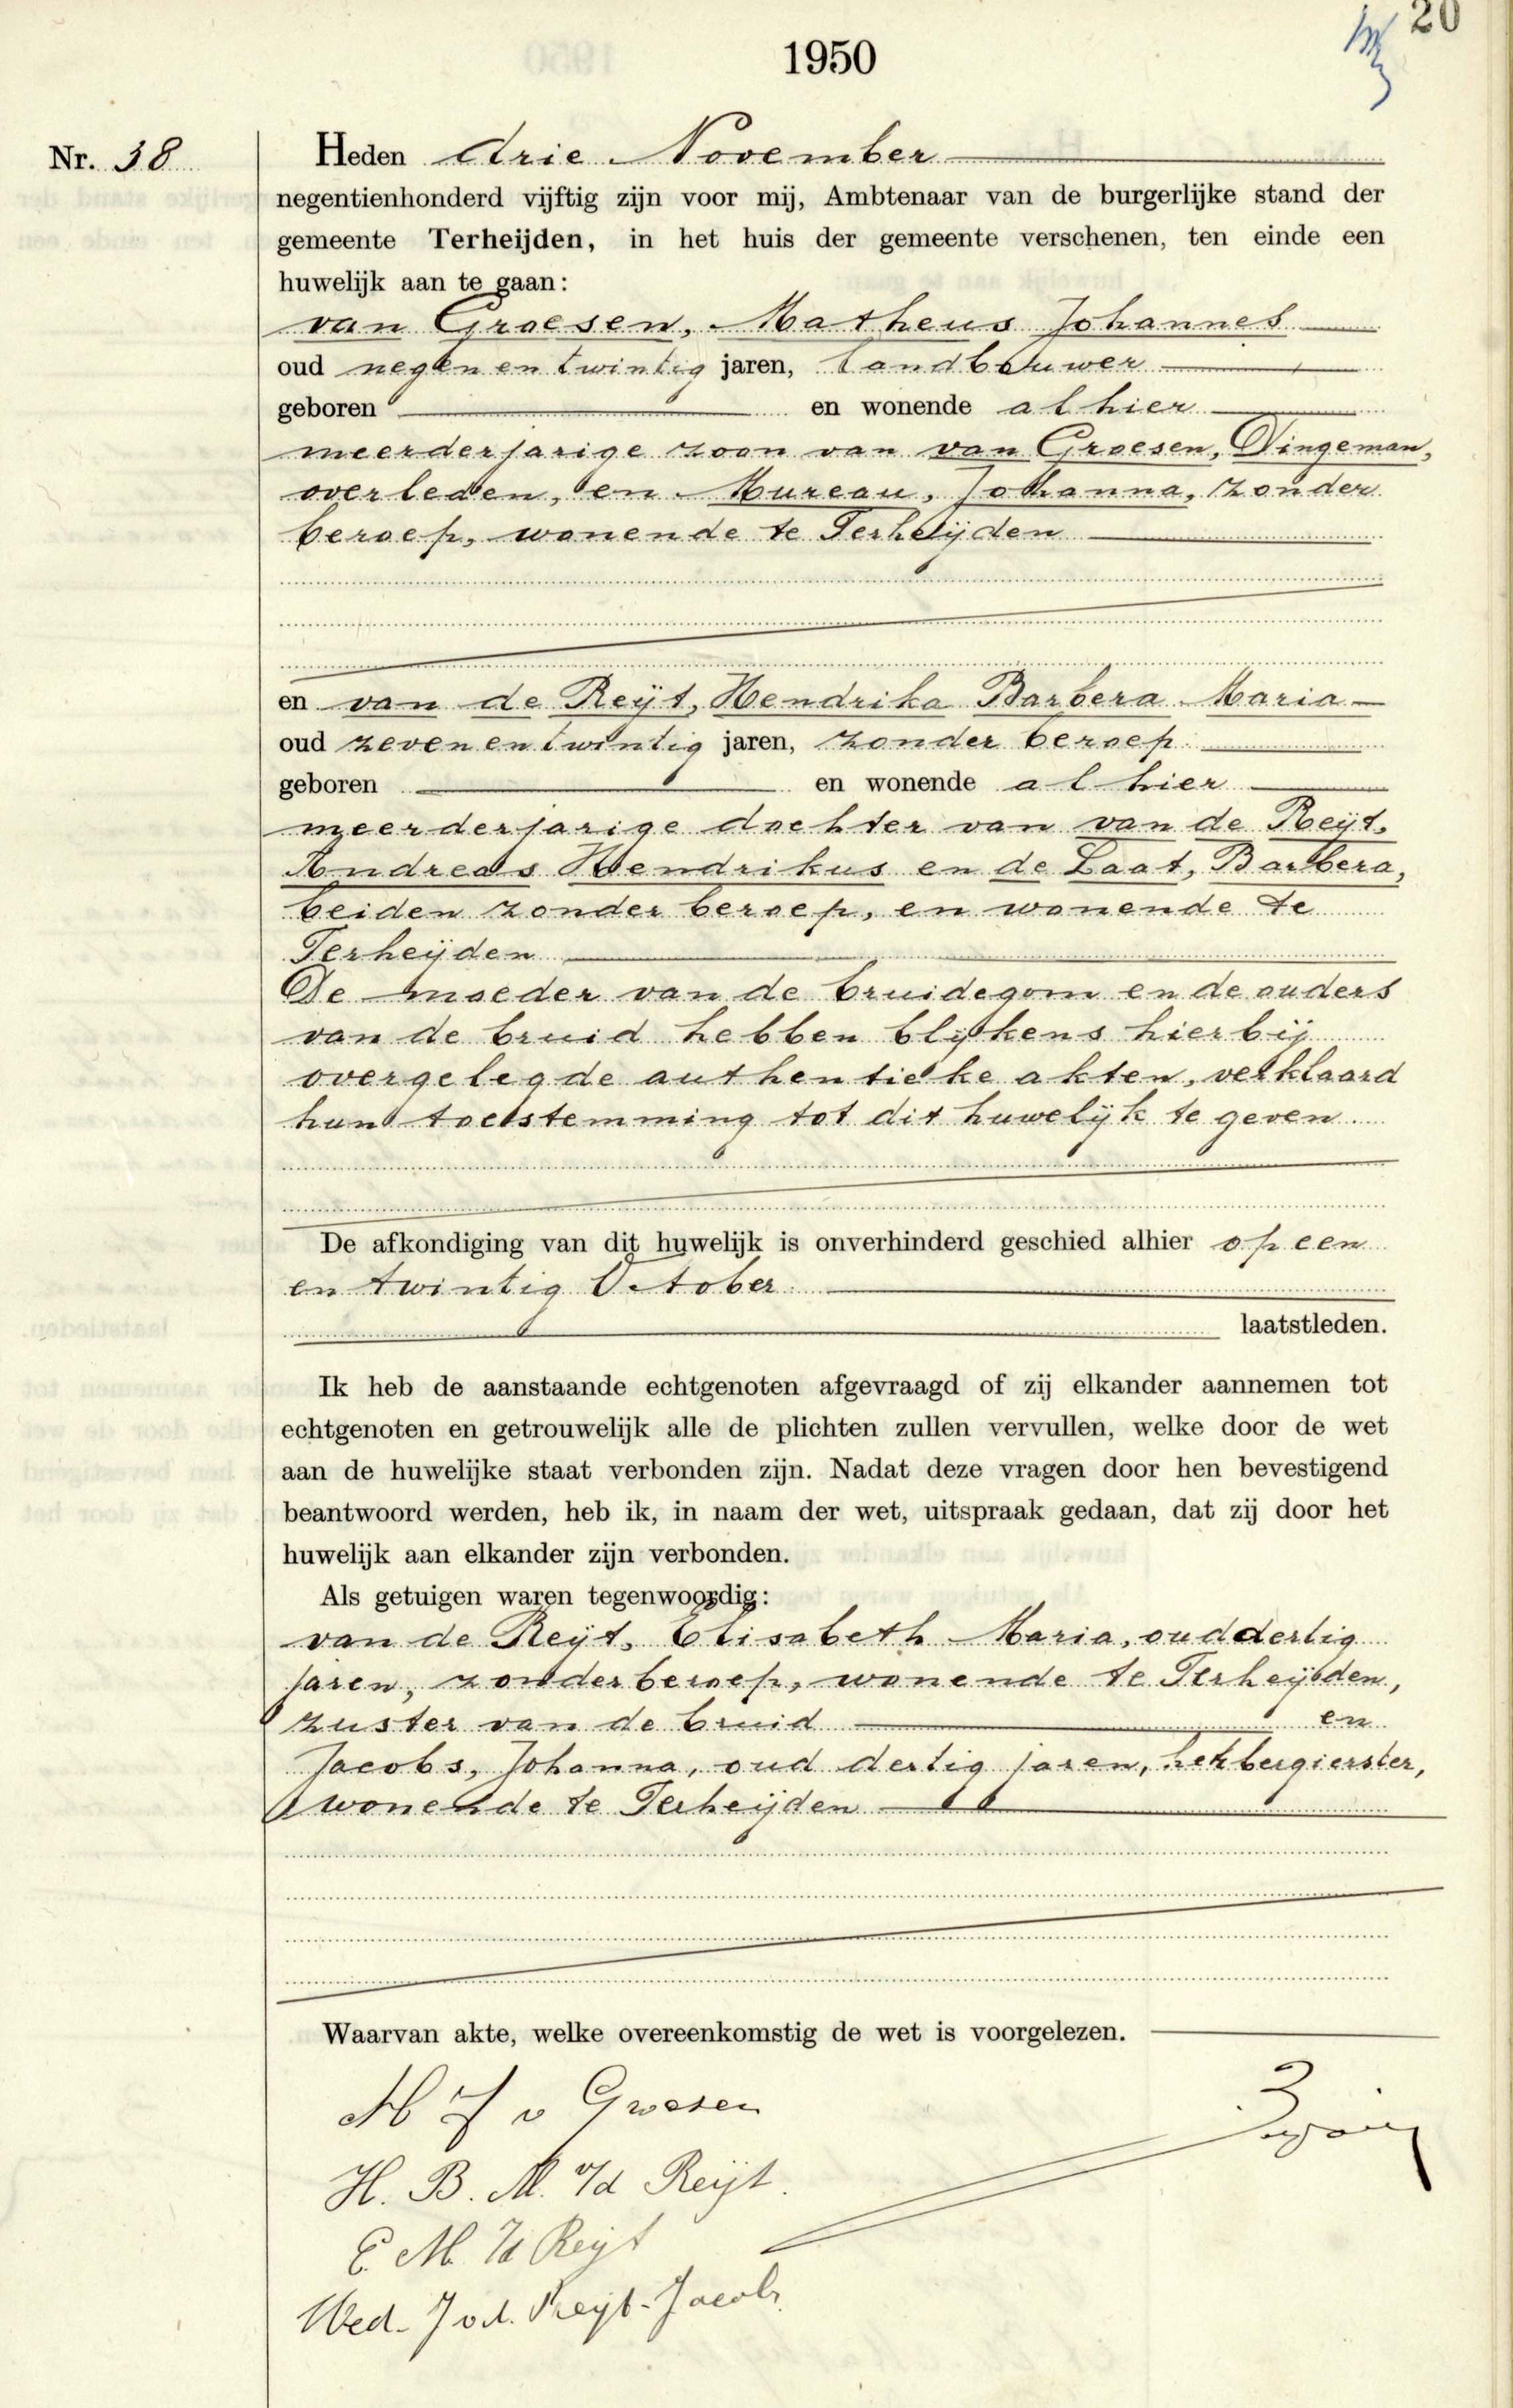 20
1950
Nr. 38
Heden drie November
negentienhonderd vijftig zijn voor mij, Ambtenaar van de burgerlijke stand der
gemeente Terheijden, in het huis der gemeente verschenen, ten einde een
huwelijk aan te gaan:
van Groesen, Matheus Johannes
oud negen en twintig jaren, landbouwer
geboren en wonende alhier
meerderjarige zoon van van Groesen, Dingeman,
overleden, en Mureau, Johanna, zonder
beroep, wonende te Terheijden
en van de Reijt, Hendrika Barbera Maria
oud zeven en twintig jaren, zonder beroep
geboren en wonende alhier
meerderjarige dochter van van de Reijt,
Andreas Hendrikus en de Laat, Barbera,
beiden zonder beroep, en wonende te
Terheijden
De moeder van de bruidegom en de ouders
van de bruid hebben blijkens hierbij
overgelegde authentieke akten, verklaard
hun toestemming tot dit huwelijk te geven
De afkondiging van dit huwelijk is onverhinderd geschied alhier op een
en twintig October
laatstleden.
Ik heb de aanstaande echtgenoten afgevraagd of zij elkander aannemen tot
echtgenoten en getrouwelijk alle de plichten zullen vervullen, welke door de wet
aan de huwelijke staat verbonden zijn. Nadat deze vragen door hen bevestigend
beantwoord werden, heb ik, in naam der wet, uitspraak gedaan, dat zij door het
huwelijk aan elkander zijn verbonden.
Als getuigen waren tegenwoordig:
van de Reijt, Elisabeth Maria, oud dertig
jaren, zonder beroep, wonende te Terheijden,
zuster van de bruid en
Jacobs, Johanna, oud dertig jaren, herbergierster,
wonende te Terheijden
Waarvan akte, welke overeenkomstig de wet is voorgelezen.
M J v Groesen
H. B. M. v/d Reijt.
E. M. v/d Reijt
Wed. J v.d. Reijt-Jacobs